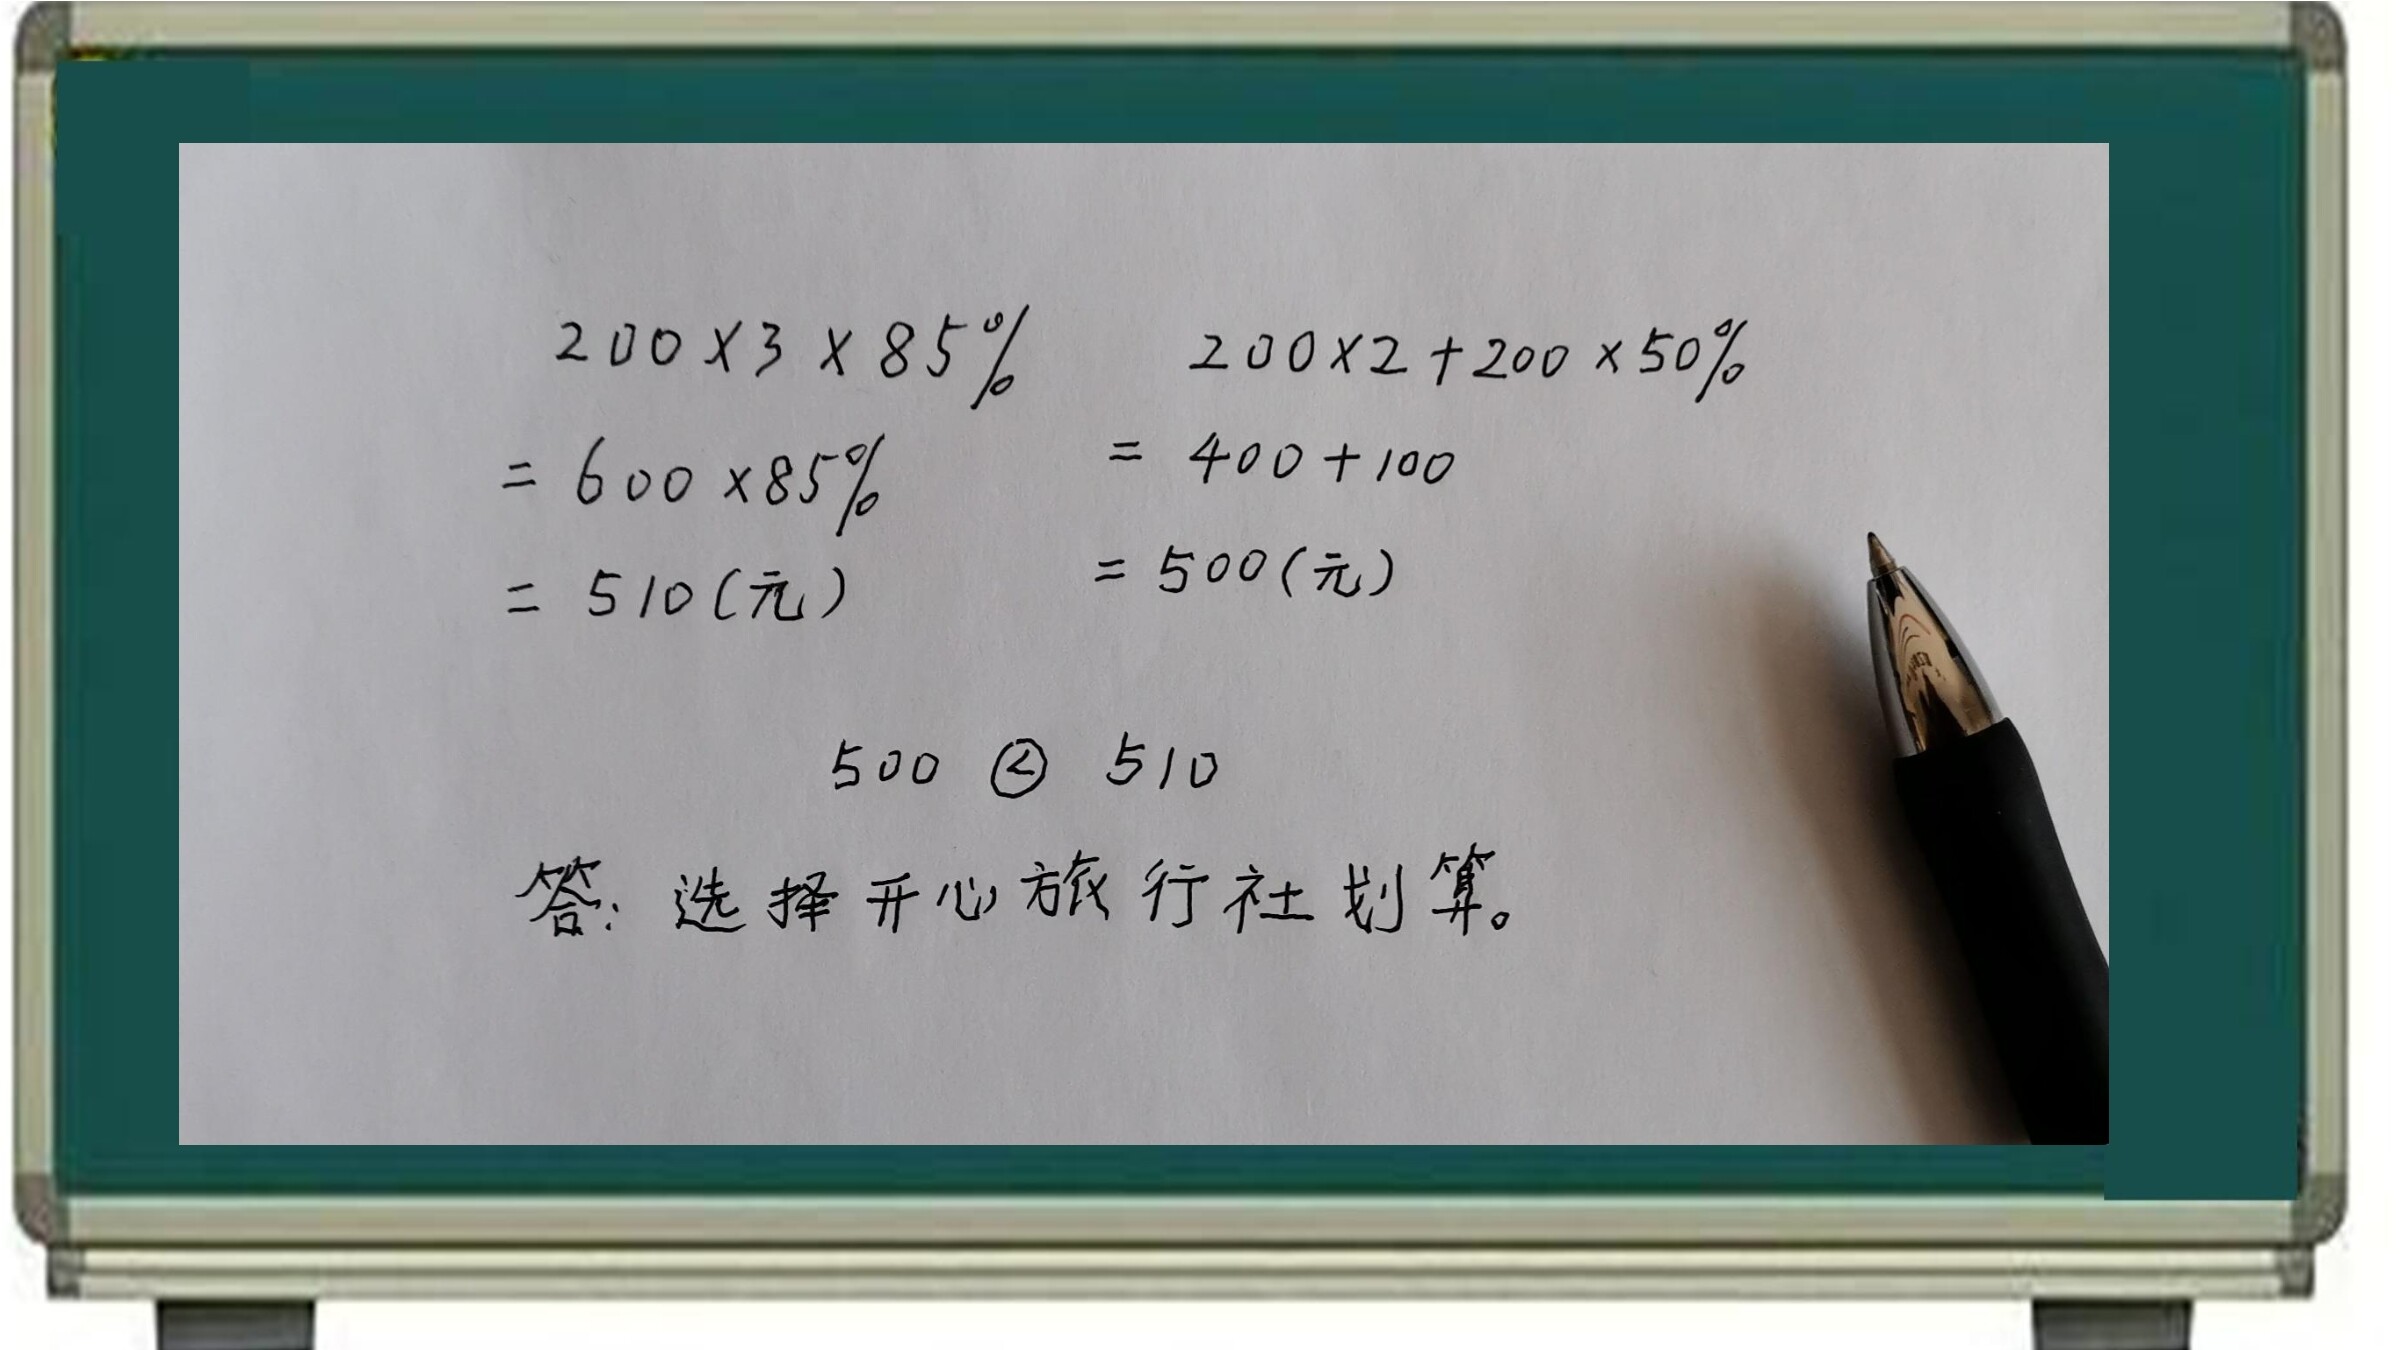 200×3×85%
=600×85%
=510(元)
200×2+200×50%
=400+100
=500(元)
500 < 510
答:选择开心旅行社划算。